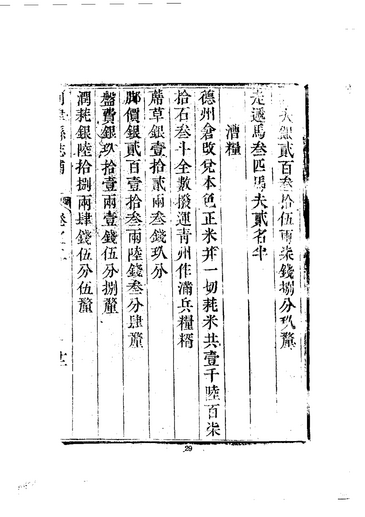 夫銀貳百叁拾伍兩柒錢捌分玖釐
走遞馬叁匹馬夫貳名半
漕糧
德州倉改兌本色正米并一切耗米共壹千陸百柒
拾石叁斗全數撥運青州作滿兵糧糈
蓆草銀壹拾貳兩叁錢玖分
腳價銀貳百壹拾叁兩陸錢叁分肆釐
盤費銀玖拾壹兩壹錢伍分捌釐
潤耗銀陸拾捌兩肆錢伍分伍釐
縣志補 卷之二
29